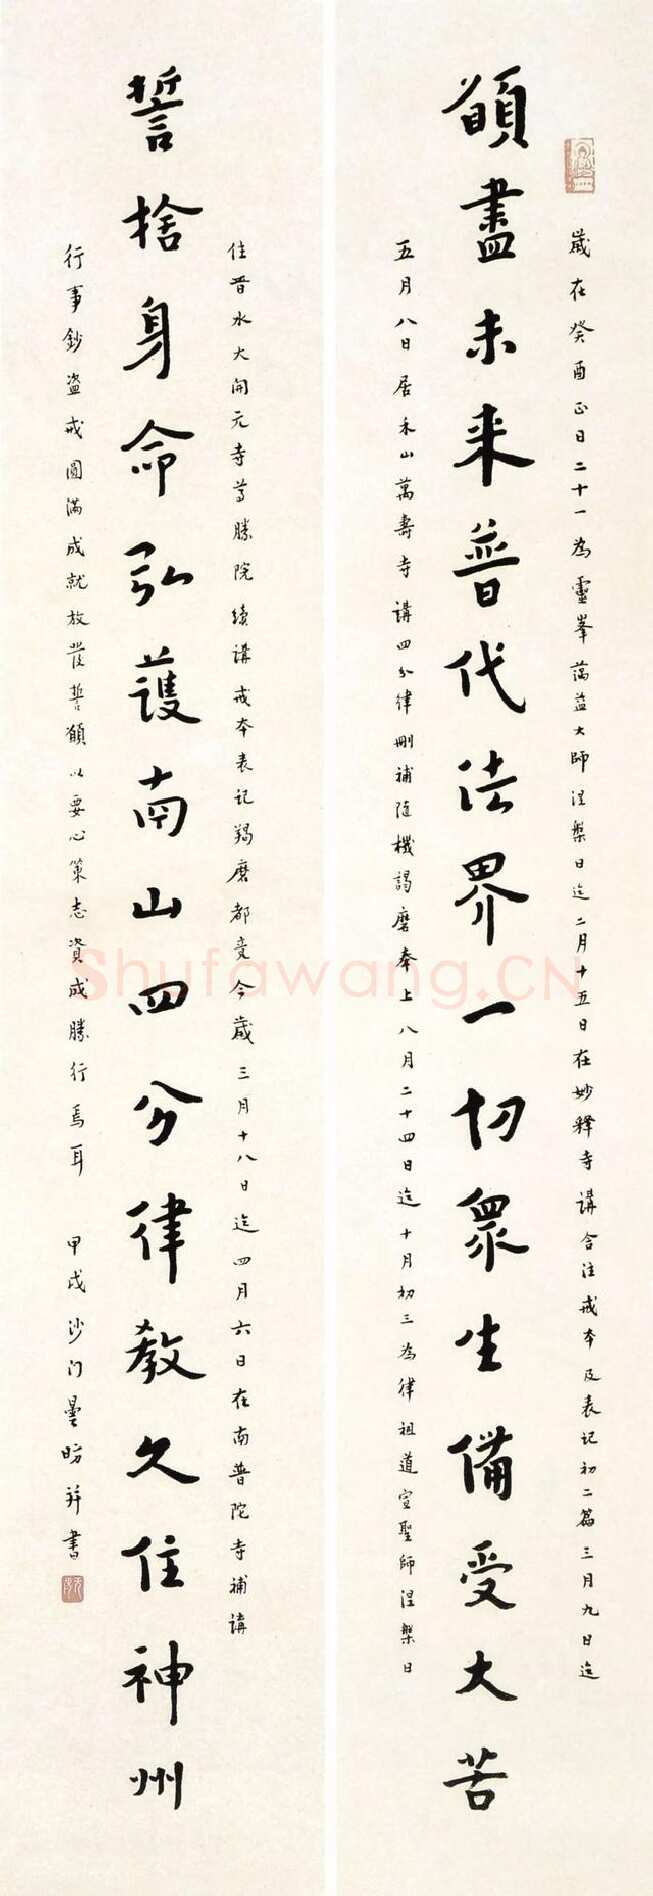 願盡未来普代法界一切眾生備受大苦
歲在癸酉正日二十一為靈峯蕅益大師涅槃日迄二月十五日在妙釋寺講含注戒本及表記初二篇三月九日迄
五月八日居禾山萬壽寺講四分律刪補随機羯磨奉上八月二十四日迄十月初三為律祖道宣聖師涅槃日
誓捨身命弘護南山四分律教久住神州
住晉水大開元寺尊勝院續講戒本表記羯磨都竟今歲三月十八日迄四月六日在南普陀寺補講
行事鈔盗戒圓滿成就故發誓願以要心策志資成勝行焉耳 甲戌沙门曇昉并書
Shufawang.CN